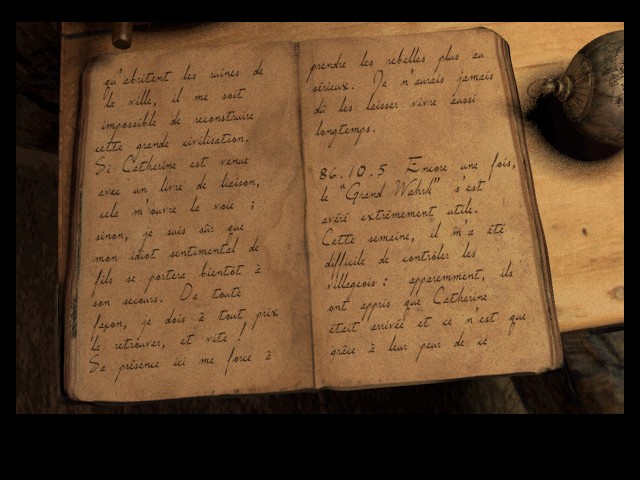 qu'abritent les ruines de
la ville, il me soit
impossible de reconstruire
cette grande civilisation.
Si Catherine est venue
avec un livre de liaison,
cela m'ouvre la voie ;
sinon, je suis sûr que
mon idiot sentimental de
fils se portera bientôt à
son secours. De toute
façon, je dois à tout prix
la retrouver, et vite !
Sa présence ici me force à
prendre les rebelles plus au
sérieux. Je n'aurais jamais
dû les laisser vivre aussi
longtemps.
86.10.5 Encore une fois,
le "Grand Wahrk" s'est
avéré extrêmement utile.
Cette semaine, il m'a été
difficile de contrôler les
villageois : apparemment, ils
ont appris que Catherine
était arrivée et ce n'est que
grâce à leur peur de ce